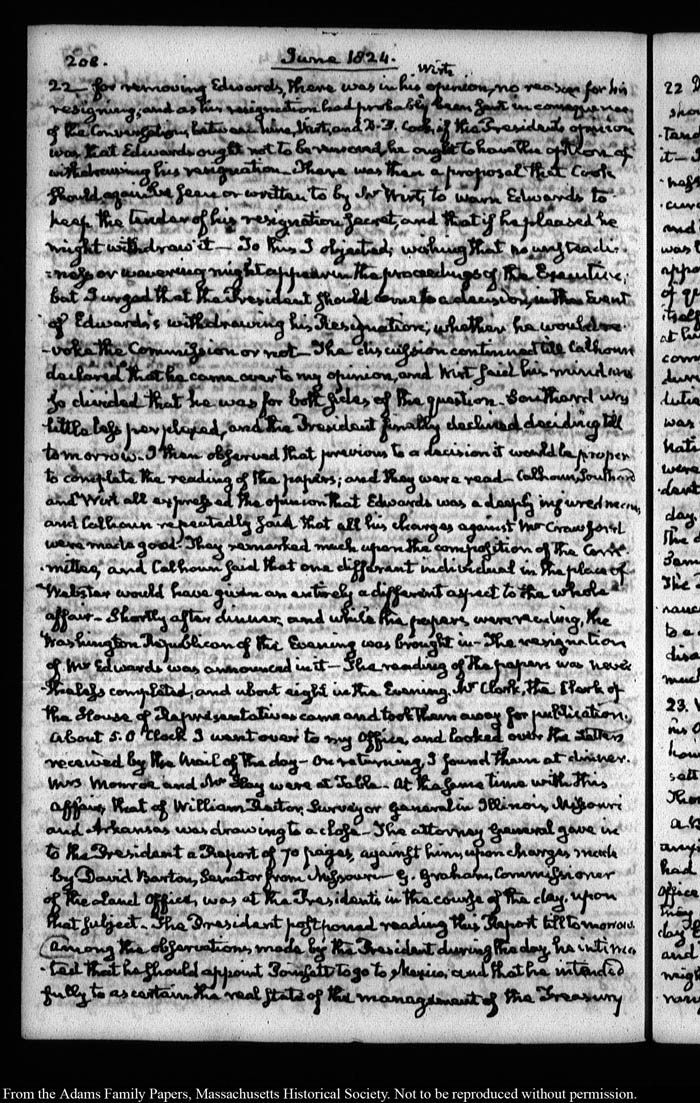 208.
June 1824.
Wirt
22 for removing Edwards, there was in his opinion, no reason for his
resigning; and as his resignation had probably been sent in consequence
of the Conversation between Wirt, and D. P. Cook, if the President's opinion
was that Edwards ought not to be removed, he ought to have the option of
withdrawing his resignation. There was then a proposal that Cook
should again be seen or written to by Mr Wirt, to warn Edwards to
keep the tender of his resignation secret, and that if he pleased he
might withdraw it — To this I objected; wishing that no unsteadi-
-ness or wavering might appear in the proceedings of the Executive;
but I urged that the President should come to a decision, in the Event
of Edwards's withdrawing his Resignation, whether he would re-
-voke the Commission or not — The discussion continued till Calhoun
declared that he came over to my opinion, and Wirt said his mind was
so divided that he was for both sides of the question. Southard was
little less perplexed, and the President finally declined deciding till
tomorrow. I then observed that previous to a decision it would be proper
to complete the reading of the papers; and they were read — Calhoun, Southard
and Wirt all expressed the opinion that Edwards was a deeply injured man,
and Calhoun repeatedly said that all his charges against Mr Crawford
were made good. They remarked much upon the composition of the Com-
-mittee, and Calhoun said that one different individual in the place of
Webster would have given an entirely a different aspect to the whole
affair — Shortly after dinner, and while the papers were reading, the
Washington Republican of this Evening was brought in — The resignation
of Mr Edwards was announced in it — The reading of the papers was never-
-theless completed; and about eight in the Evening, Mr Clark, the Clerk of
the House of Representatives came and took them away for publication.
About 5. O'Clock I went over to my Office, and looked over the Letters
received by the Mail of the day — On returning, I found them at dinner.
Mrs Monroe and Mr Hay were at Table. At the same time with this
affair, that of William Rector, Surveyor General in Illinois, Missouri
and Arkansas was drawing to a close — The Attorney General gave in
to the President a Report of 70 pages, against him, upon charges made
by David Barton, Senator from Missouri — G. Graham, Commissioner
of the Land Office, was at the President's in the course of the day, upon
that subject. The President postponed reading this Report till tomorrow.
Among the observations made by the President during the day, he intima-
-ted that he should appoint Poinsett to go to Mexico; and that he intended
fully to ascertain the real state of the management of the Treasury
22
23.
From the Adams Family Papers, Massachusetts Historical Society. Not to be reproduced without permission.